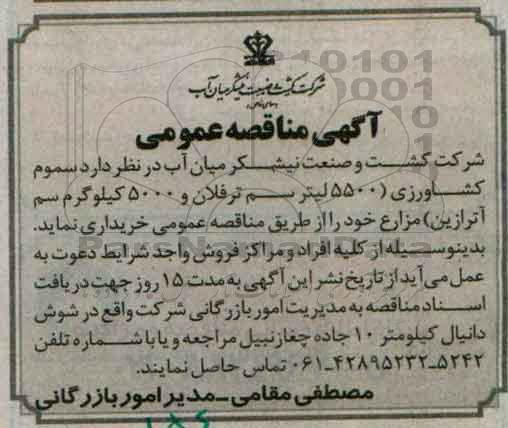 شرکت کشت و صنعت نیشکر میان آب
آگهی مناقصه عمومی
شرکت کشت و صنعت نیشکر میان آب در نظر دارد سموم
کشاورزی (۵۵۰۰ لیتر سم ترفلان و ۵۰۰۰ کیلوگرم سم
آترازین) مزارع خود را از طریق مناقصه عمومی خریداری نماید.
بدینوسیله از کلیه افراد و مراکز فروش واجد شرایط دعوت به
عمل می آید از تاریخ نشر این آگهی به مدت ۱۵ روز جهت دریافت
اسناد مناقصه به مدیریت امور بازرگانی شرکت واقع در شوش
دانیال کیلومتر ۱۰ جاده چغازنبیل مراجعه و یا با شماره تلفن
۵۲۴۲-۴۲۸۹۵۲۳۲-۰۶۱ تماس حاصل نمایند.
مصطفی مقامی - مدیر امور بازرگانی